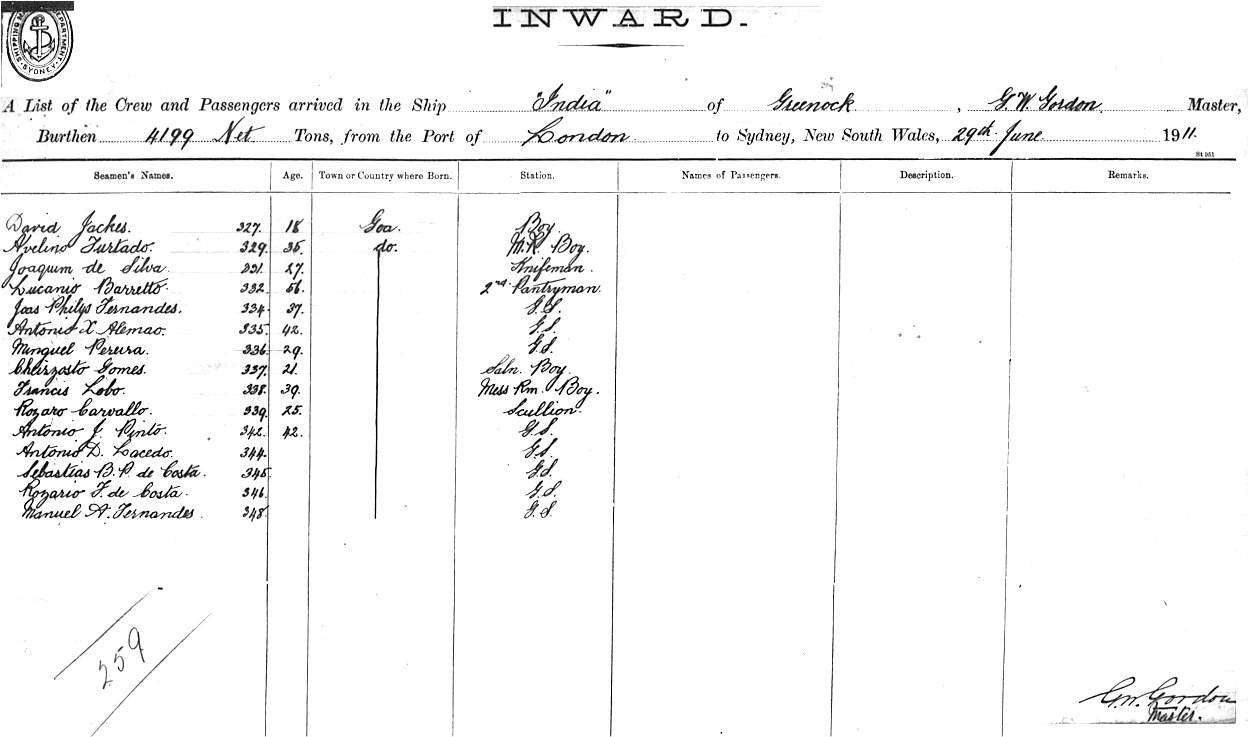 SHIPPING MASTER'S DEPARTMENT SYDNEY
INWARD.
A List of the Crew and Passengers arrived in the Ship "India" of Greenock, G. W. Gordon Master,
Burthen 4199 Net Tons, from the Port of London to Sydney, New South Wales, 29th June 1911.
St 951
Seamen's Names. Age. Town or Country where Born. Station. Names of Passengers. Description. Remarks.
David Jaches. 327. 18 Goa. Boy
Avelino Furtado. 329. 35. do. M.R. Boy.
Joaquim de Silva. 331. 27. Knifeman.
Lucanio Barretto. 332. 56. 2nd Pantryman.
Joas Philys Fernandes. 334. 37. G.S.
Antonio X Alemao. 335. 42. G.S.
Minguel Pereira. 336. 29. G.S.
Cheizzosto Gomes. 337. 21. Saln. Boy.
Francis Lobo. 338. 39. Mess Rm. Boy.
Rozaro Carvallo. 339. 25. Scullion.
Antonio J. Pinto. 342. 42. G.S.
Antonio D. Lacedo. 344. G.S.
Sebastias B. P. de Costa. 345. G.S.
Rozario F. de Costa. 346. G.S.
Manuel A. Fernandes. 348. G.S.
259
G. W. Gordon
Master.